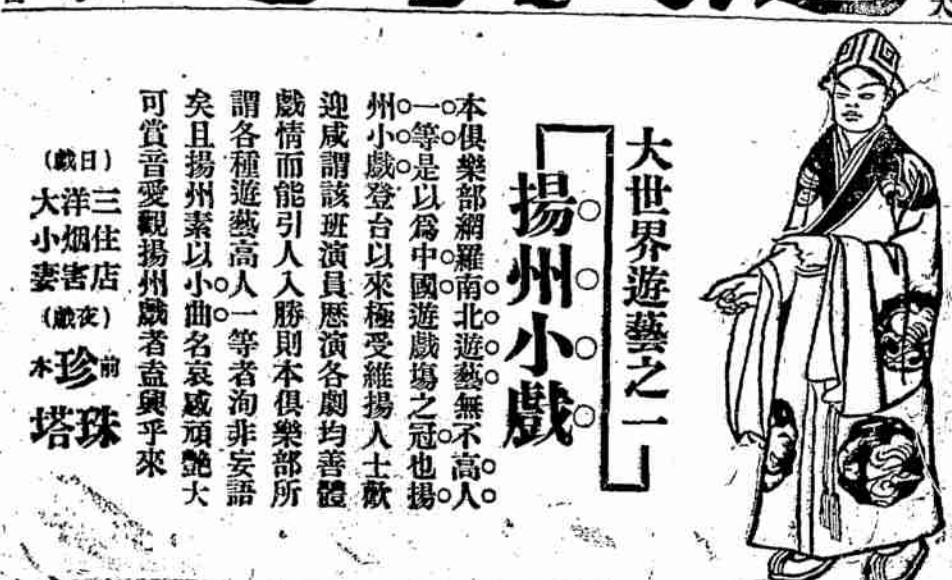 大世界遊藝之一
揚州小戲
本俱樂部網羅南北遊藝無不高人
一等是以爲中國遊戲塲之冠也揚
州小戲登台以來極受維揚人士歡
迎咸謂該班演員歷演各劇均善體
戲情而能引人入勝則本俱樂部所
謂各種遊藝高人一等者洵非妄語
矣且揚州素以小曲名哀感頑艷大
可賞音愛觀揚州戲者盍興乎來
(日戲)
三住店
洋烟害
大小妻
(夜戲)
前本
珍珠塔